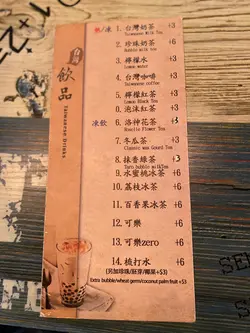 台灣
飲品
Taiwanese Drinks
熱/凍
1. 台灣奶茶 +3
Taiwanese Milk Tea
2. 珍珠奶茶 +6
Bubble milk tea
3. 檸檬水 +3
Lemon water
4. 台灣咖啡 +3
Taiwanese coffee
5. 檸檬紅茶 +3
Lemon Black Tea
6. 泡沫紅茶 +3
凍飲
6. 洛神花茶 +3
Roselle Flower Tea
7. 冬瓜茶 +3
Classic wax Gourd Tea
8. 抹香綠茶 +3
9. 冰蜜桃冰茶 +6
10. 荔枝冰茶 +6
11. 百香果冰茶 +6
12. 可樂 +6
13. 可樂zero +6
14. 梳打水 +6
(另加珍珠/胚芽/椰果+$3)
Extra bubble/wheat germs/coconut palm fruit +$3